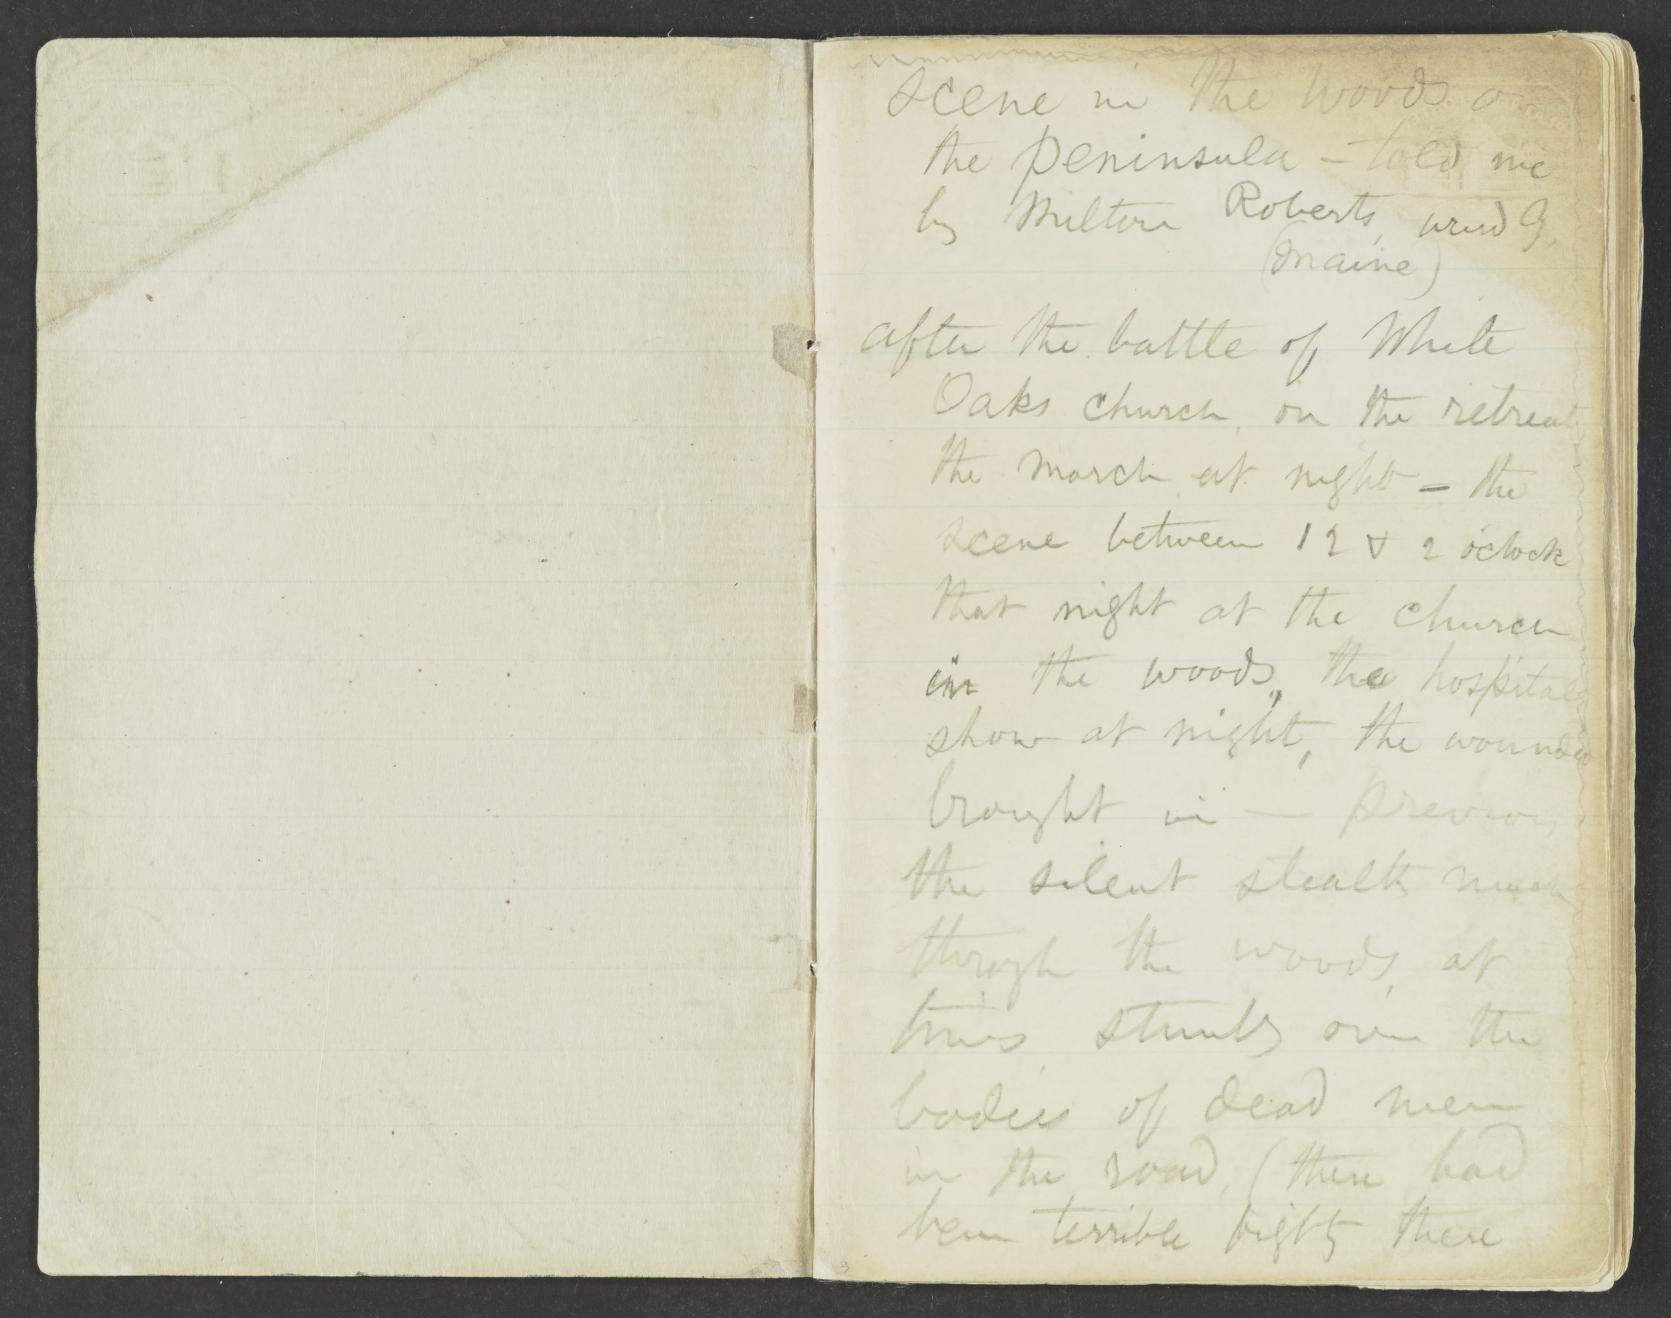 scene in the woods on
the peninsula – told me
by Milton Roberts, ward G.
(Maine)
after the battle of White
Oaks church, on the retreat
the march at night – the
scene between 12 & 2 o'clock
that night at the church
in the woods, the hospital
show at night, the wounded
brought in — previous,
the silent stealth march
through the woods, at
times stumbg over the
bodies of dead men
in the road, (there had
been terrible fightg there
3